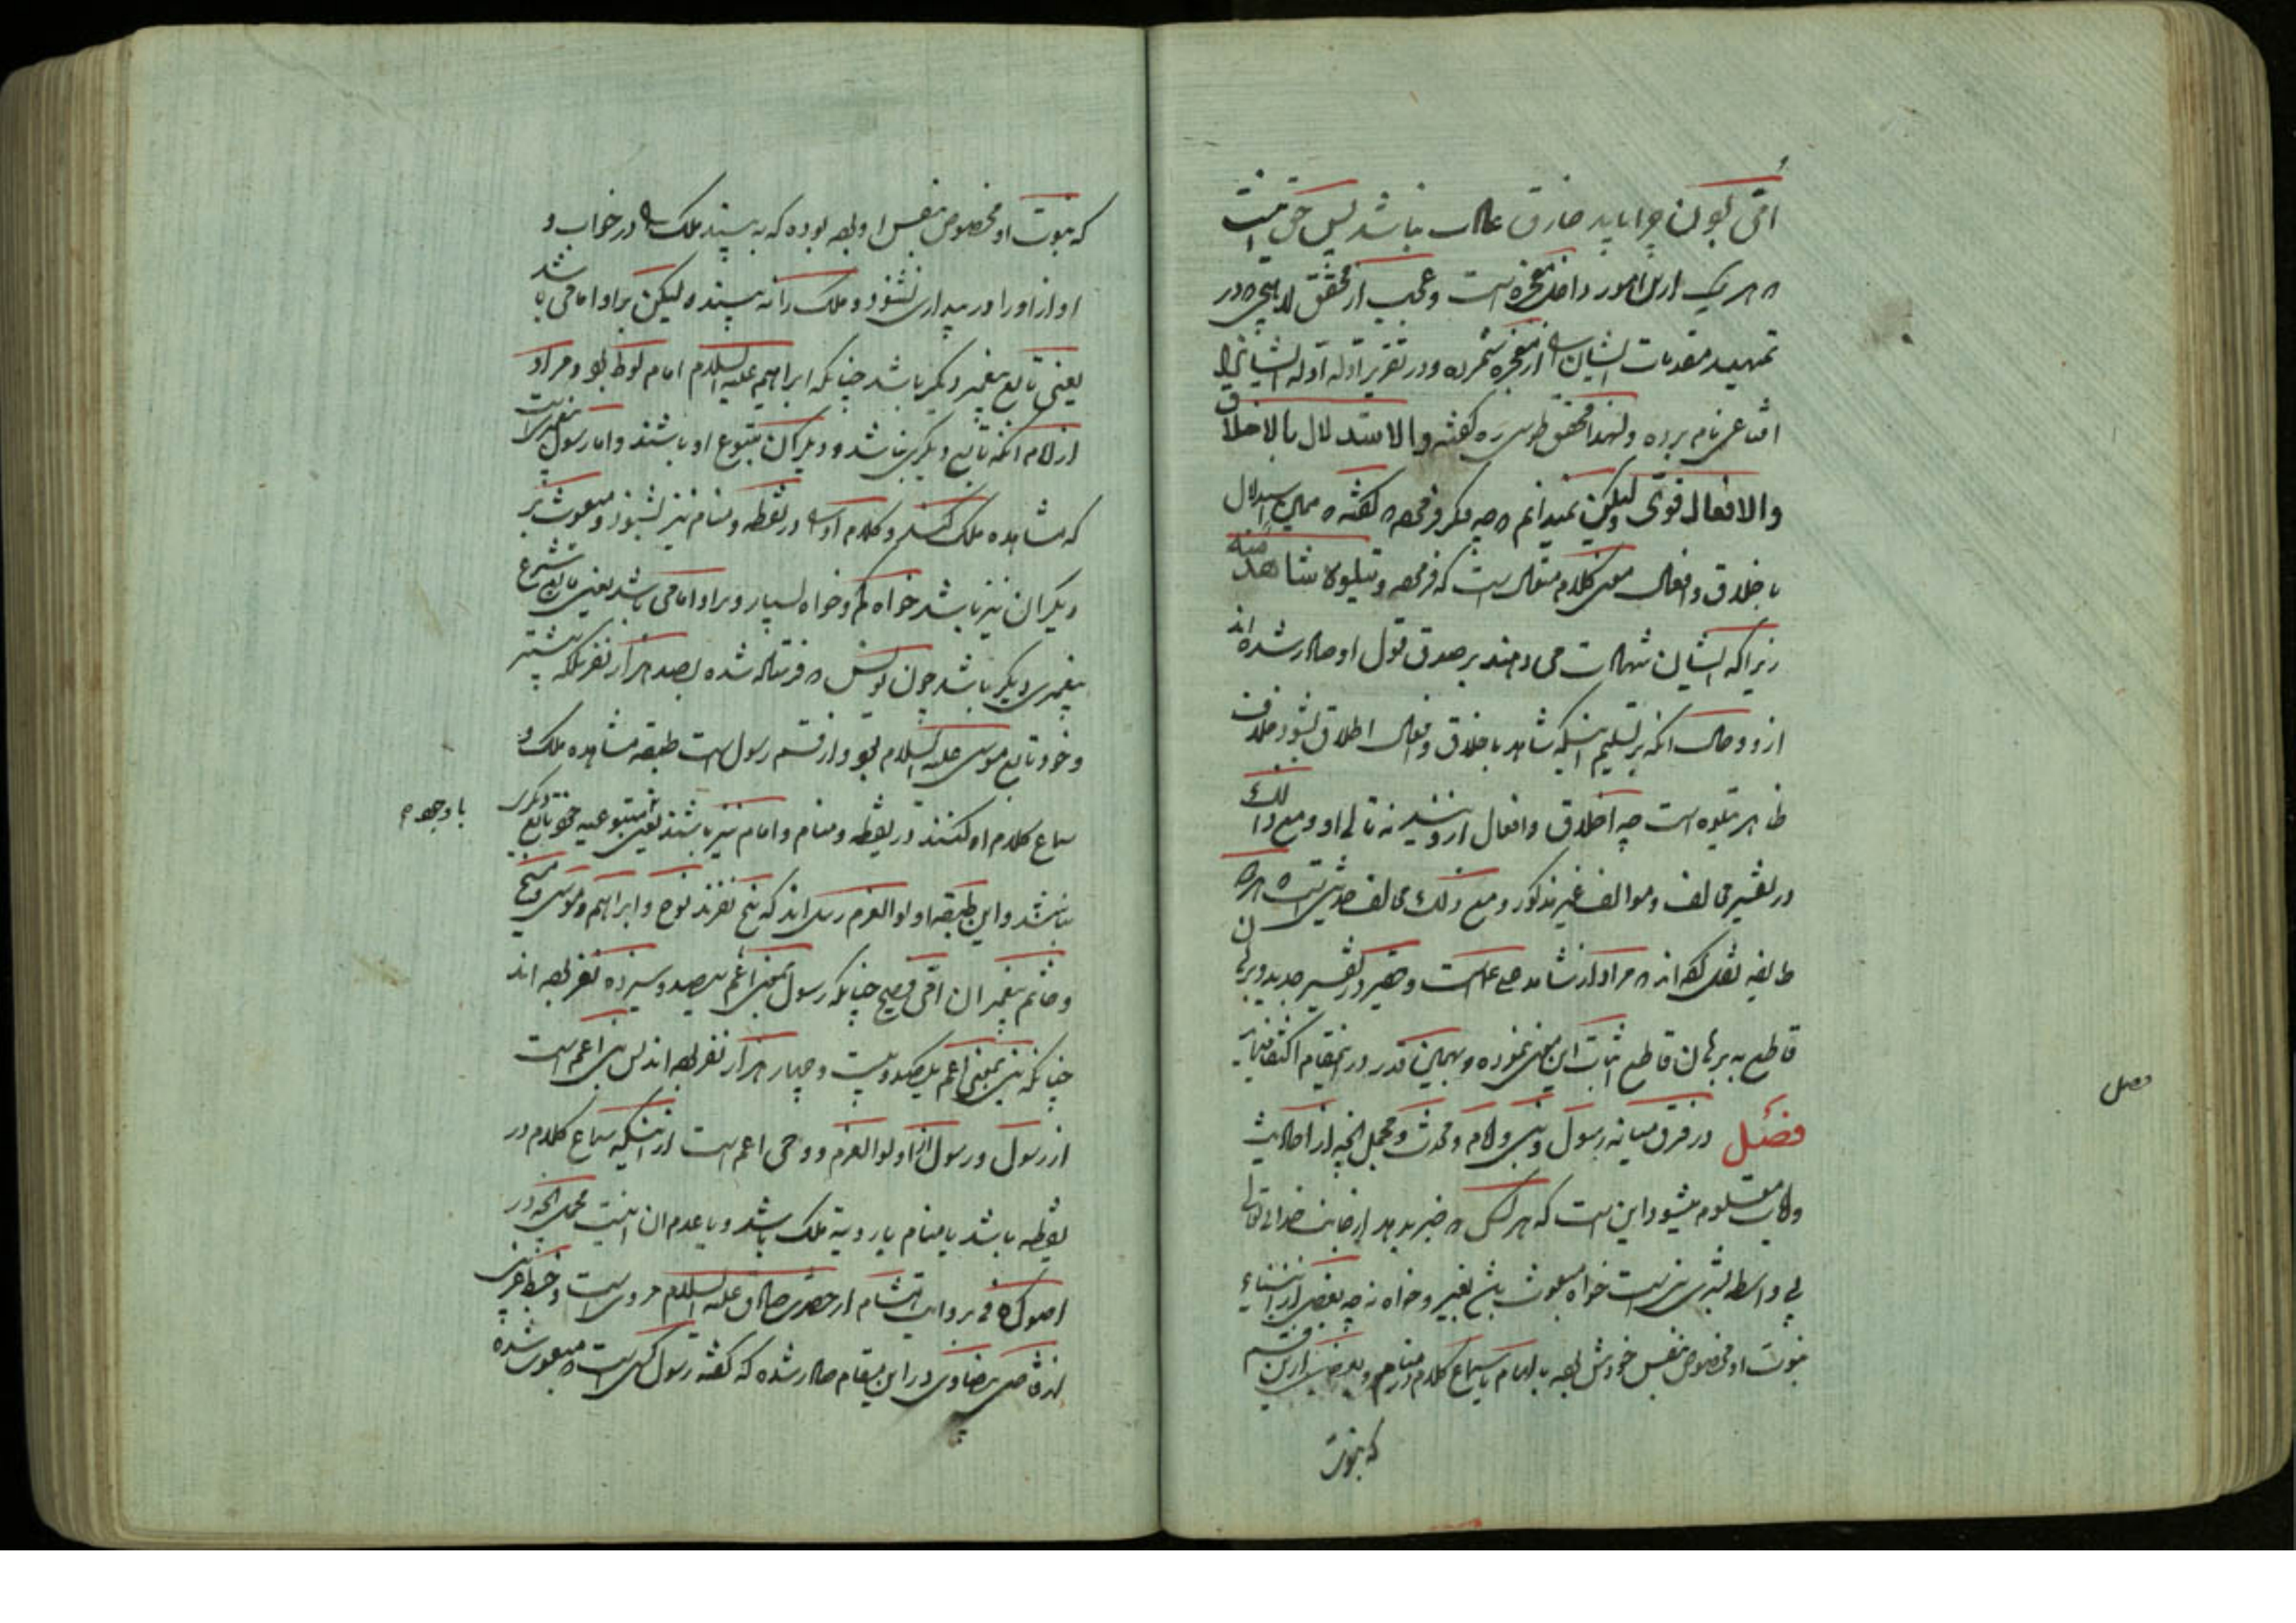 امّی بودن چرا باید خارق عادت نباشد پس حق اینست
که هر یک ازین امور داخل معجزه است و عجب از محقق لاهیجی که در
تمهید مقدمات ایشان را از معجزه شمرده و در تقریر ادله ادله ایشانرا
اقناعی نام برده و لهذا محقق طوسی ره گفته والاستدلال بالاخلاق
والافعال قوی ولیکن نمیدانم چه فکر فرموده که گفته که همین استدلال
باخلاق و افعال معنی کلام متعال است که فرموده ویتلوه شاهد منه
زیرا که ایشان شهادت می دهند بر صدق قول او صادر شده اند
ازو و حال آنکه بر تسلیم اینکه شاهد باخلاق و افعال اطلاق شود خلاف
ظاهر یتلوه است چه اخلاق و افعال ازویند نه تالی او و مع ذلك
در تفسیر مخالف و موالف غیر مذکور و مع ذلک مخالف حدیثی است که هر دو
طایفه نقل کرده اند که مراد از شاهد علی است و حقیر در تفسیر جدید و برهان
قاطع به برهان قاطع اثبات این معنی نموده و بهمین قدر در اینمقام اکتفا نماید
فصل در فرق میانه رسول و نبی و امام و محدث و مجمل آنچه از احادیث
ولایت معلوم میشود این است که هر کس که خبر بدهد از جانب خدای تعالی
بی واسطه بشری نبی است خواه مبعوث بشود بغیر و خواه نه چه بعضی از انبیاء
نبوت او مخصوص بنفس خودش بوده بالهام یا سماع کلام در منام و بعضی ازین قسم
که نبوت
فصل
که نبوت او مخصوص بنفس او بوده که به بیند ملک را در خواب و
اواز او را در بیداری نشنود و ملک را نه بیند و لیکن بر او امامی باشد
یعنی تابع پیغمبر دیگر باشد چنانکه ابراهیم علیه السلام امام لوط بود و مراد
از امام آنکه تابع دیگری نباشد و دیگران متبوع او باشند و اما رسول پیغمبریست
که مشاهده ملک کند و کلام او را در یقظه و منام نیز بشنود و مبعوث بر
دیگران نیز باشد خواه کم و خواه بسیار و بر او امامی باشد یعنی تابع شرع
پیغمبری دیگر باشد چون یونس که فرستاده شده بصد هزار نفر بلکه بیشتر
و خود تابع موسی علیه السلام بود و از قسم رسول است طبقه مشاهده ملک و
سماع کلام او کنند در یقظه و منام و امام نیز باشند یعنی متبوعیه خود تابع دیگری
نباشند و این طبقه اولوالعزم رسل اند که پنج نفرند نوح و ابراهیم و موسی و مسیح
و خاتم پیغمبران امّی فصیح چنانکه رسول بمعنی اعم سیصد و سیزده نفر بوده اند
چنانکه نبی بمعنی اعم یکصد و بیست و چهار هزار نفر بوده اند پس نبی اعم است
از رسول و رسول از اولوالعزم و وحی اعم است از اینکه سماع کلام در
یقظه باشد یا منام یا رویة ملک باشد و یا عدم آن اینست مجمل آنچه در
اصول کافی بروایت هشام از حضرت صادق علیه السلام مروی است و خبط غریبی
از قاضی بیضاوی در این مقام صادر شده که گفته رسول کسی است که مبعوث شده
با وجود